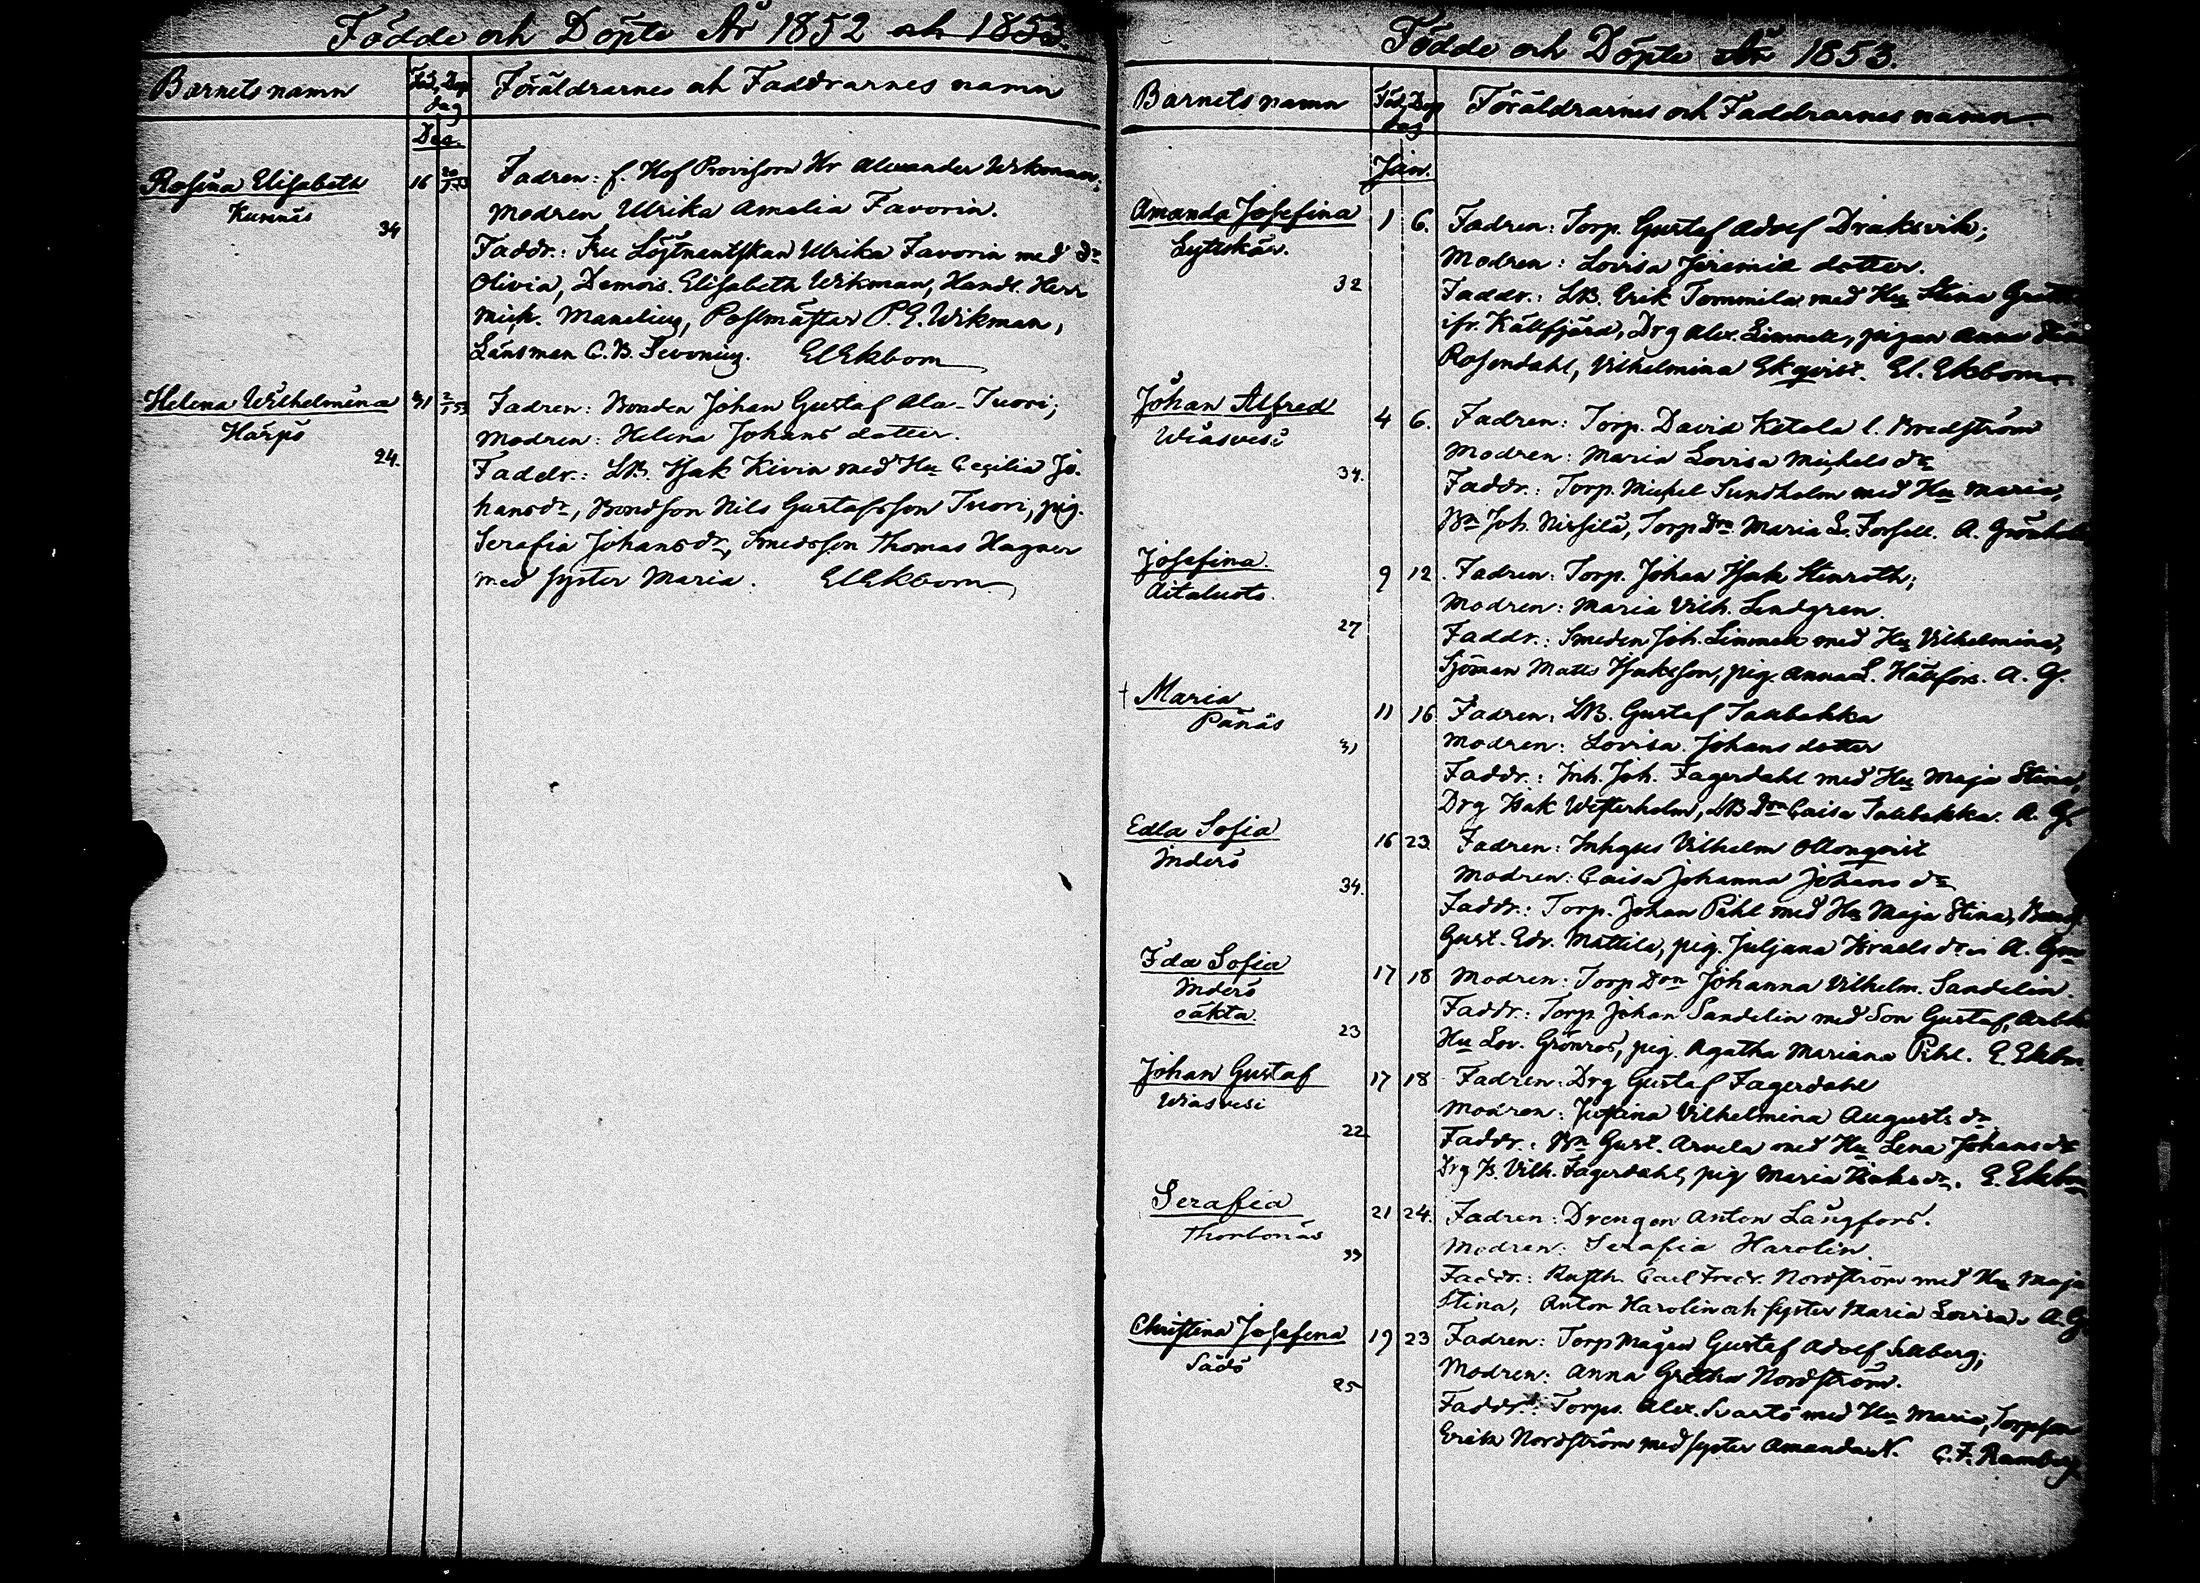 Födde och Döpte År 1852 och 1853.
Barnets namn Föd. Dop dag Föräldrarnes och Faddrarnes namn
Dec.
Rosina Elisabeth 16 20/1 53 Fadren: f. Hof Provisorn Hr Alexander Wikman;
Kumnäs Modren Ulrika Amalia Favorin.
34
Faddr.: Fru Löjtnantskan Ulrika Favorin med dr
Olivia, Demois. Elisabeth Wikman, Handl. Herr
Mich. Manelius, Postmästar P. E. Wikman,
Länsman C. B. Sevonius. El Ekbom
Helena Wilhelmina 31 2/1 53 Fadren: Bonden Johan Gustaf Ala-Tuori;
Harpö Modren: Helena Johans dotter.
24.
Faddr.: LB. Isak Kivin med Hu Cecilia Jo-
hansdr, Bondson Nils Gustafsson Tuori, pig.
Serafia Johansdr, Smedsson Thomas Hagner
med syster Maria. El Ekbom
Födde och Döpte År 1853.
Barnets namn Föd. Dop dag Föräldrarnes och Faddrarnes namn
Jan.
Amanda Josefina 1 6. Fadren: Torp. Gustaf Adolf Draksvik;
Lyttskär. Modren: Lovisa Jeremiæ dotter.
32
Faddr.: LB. Erik Tommila med Hu Stina Greta
ifr. Källfjärd, Drg Alex. Limnell, pigan Anna Stina
Rosendahl, Vilhelmina Ekqvist. El. Ekbom
Johan Alfred 4 6. Fadren: Torp. David Ketola l. Bredström
Wiasvesi Modren: Maria Lovisa Michels dr
34.
Faddr.: Torp. Michel Sundholm med Hu Maria,
Bn Joh. Nissilä, Torp Drn Maria L. Forsell. A. Grönholm
Josefina 9 12. Fadren: Torp. Johan Isak Stenroth;
Aitaluoto. Modren: Maria Vilh. Lindgren.
27
Faddr.: Smeden Joh. Limnell med Hu Vilhelmina,
Sjöman Matts Isaksson, pig. Anna L. Hällfors. A. G.
† Maria 11 16 Fadren: LB. Gustaf Takbakka
Pånäs Modren: Lovisa Johans dotter
31
Faddr.: Inh. Joh. Fagerdahl med Hu Maja Stina,
Drg Isak Westerholm, LB Drn Caisa Takbakka. A. G.
Edla Sofia 16 23 Fadren: Inhyses Vilhelm Ollonqvist
Inderö Modren: Caisa Johanna Johans dr
34.
Faddr.: Torp. Johan Pihl med Hu Maja Stina, Bonds.
Gust. Edv. Mattila, pig. Juljana Israels dr. A. Gm
Ida Sofia 17 18 Modren: Torp Drn Johanna Vilhelm. Sandelin.
Inderö
oäkta.
23
Faddr.: Torp. Johan Sandelin med Son Gustaf, Arbk.
Hu Lov. Grönros, pig. Agatha Mariana Pihl. E. Ekbm.
Johan Gustaf 17 18 Fadren: Drg Gustaf Fagerdahl
Wiasvesi Modren: Josefina Vilhelmina Augusts dr
22
Faddr.: Bn Gust. Arvela med Hu Lena Johansdr
Drg B. Vilh. Fagerdahl, pig Maria Isaks dr. E. Ekbom
Serafia 21 24. Fadren: Drengen Anton Långfors.
Thorbonäs Modren: Serafia Harolin.
33
Faddr.: Rusth. Carl Fredr. Nordström med Hu Maja
Stina, Anton Harolin och syster Maria Lovisa. A. G.
Christina Josefina 19 23 Fadren: Torp Mågen Gustaf Adolf Sellberg;
Sådö Modren: Anna Gretha Nordström.
25
Faddr.: Torps. Alex. Svartö med Hu Maria, Torpson
Erik Nordström med syster Amanda N. C. F. Ramberg